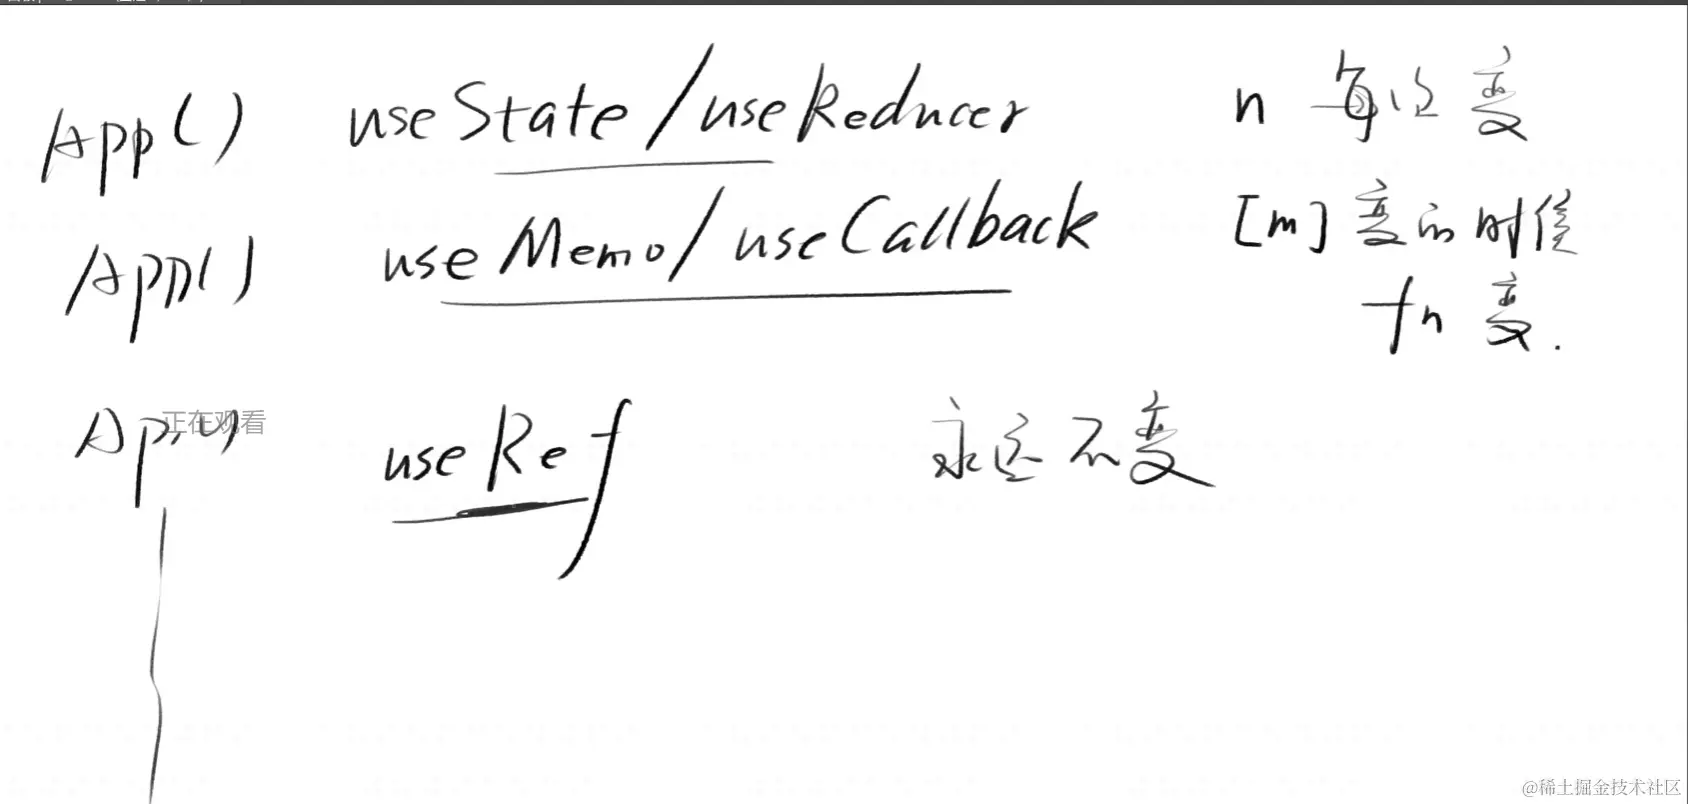 App() useState/useReducer n 每次变
App() useMemo/useCallback [m] 变的时候
fn 变.
App() useRef 永远不变
正在观看
@稀土掘金技术社区